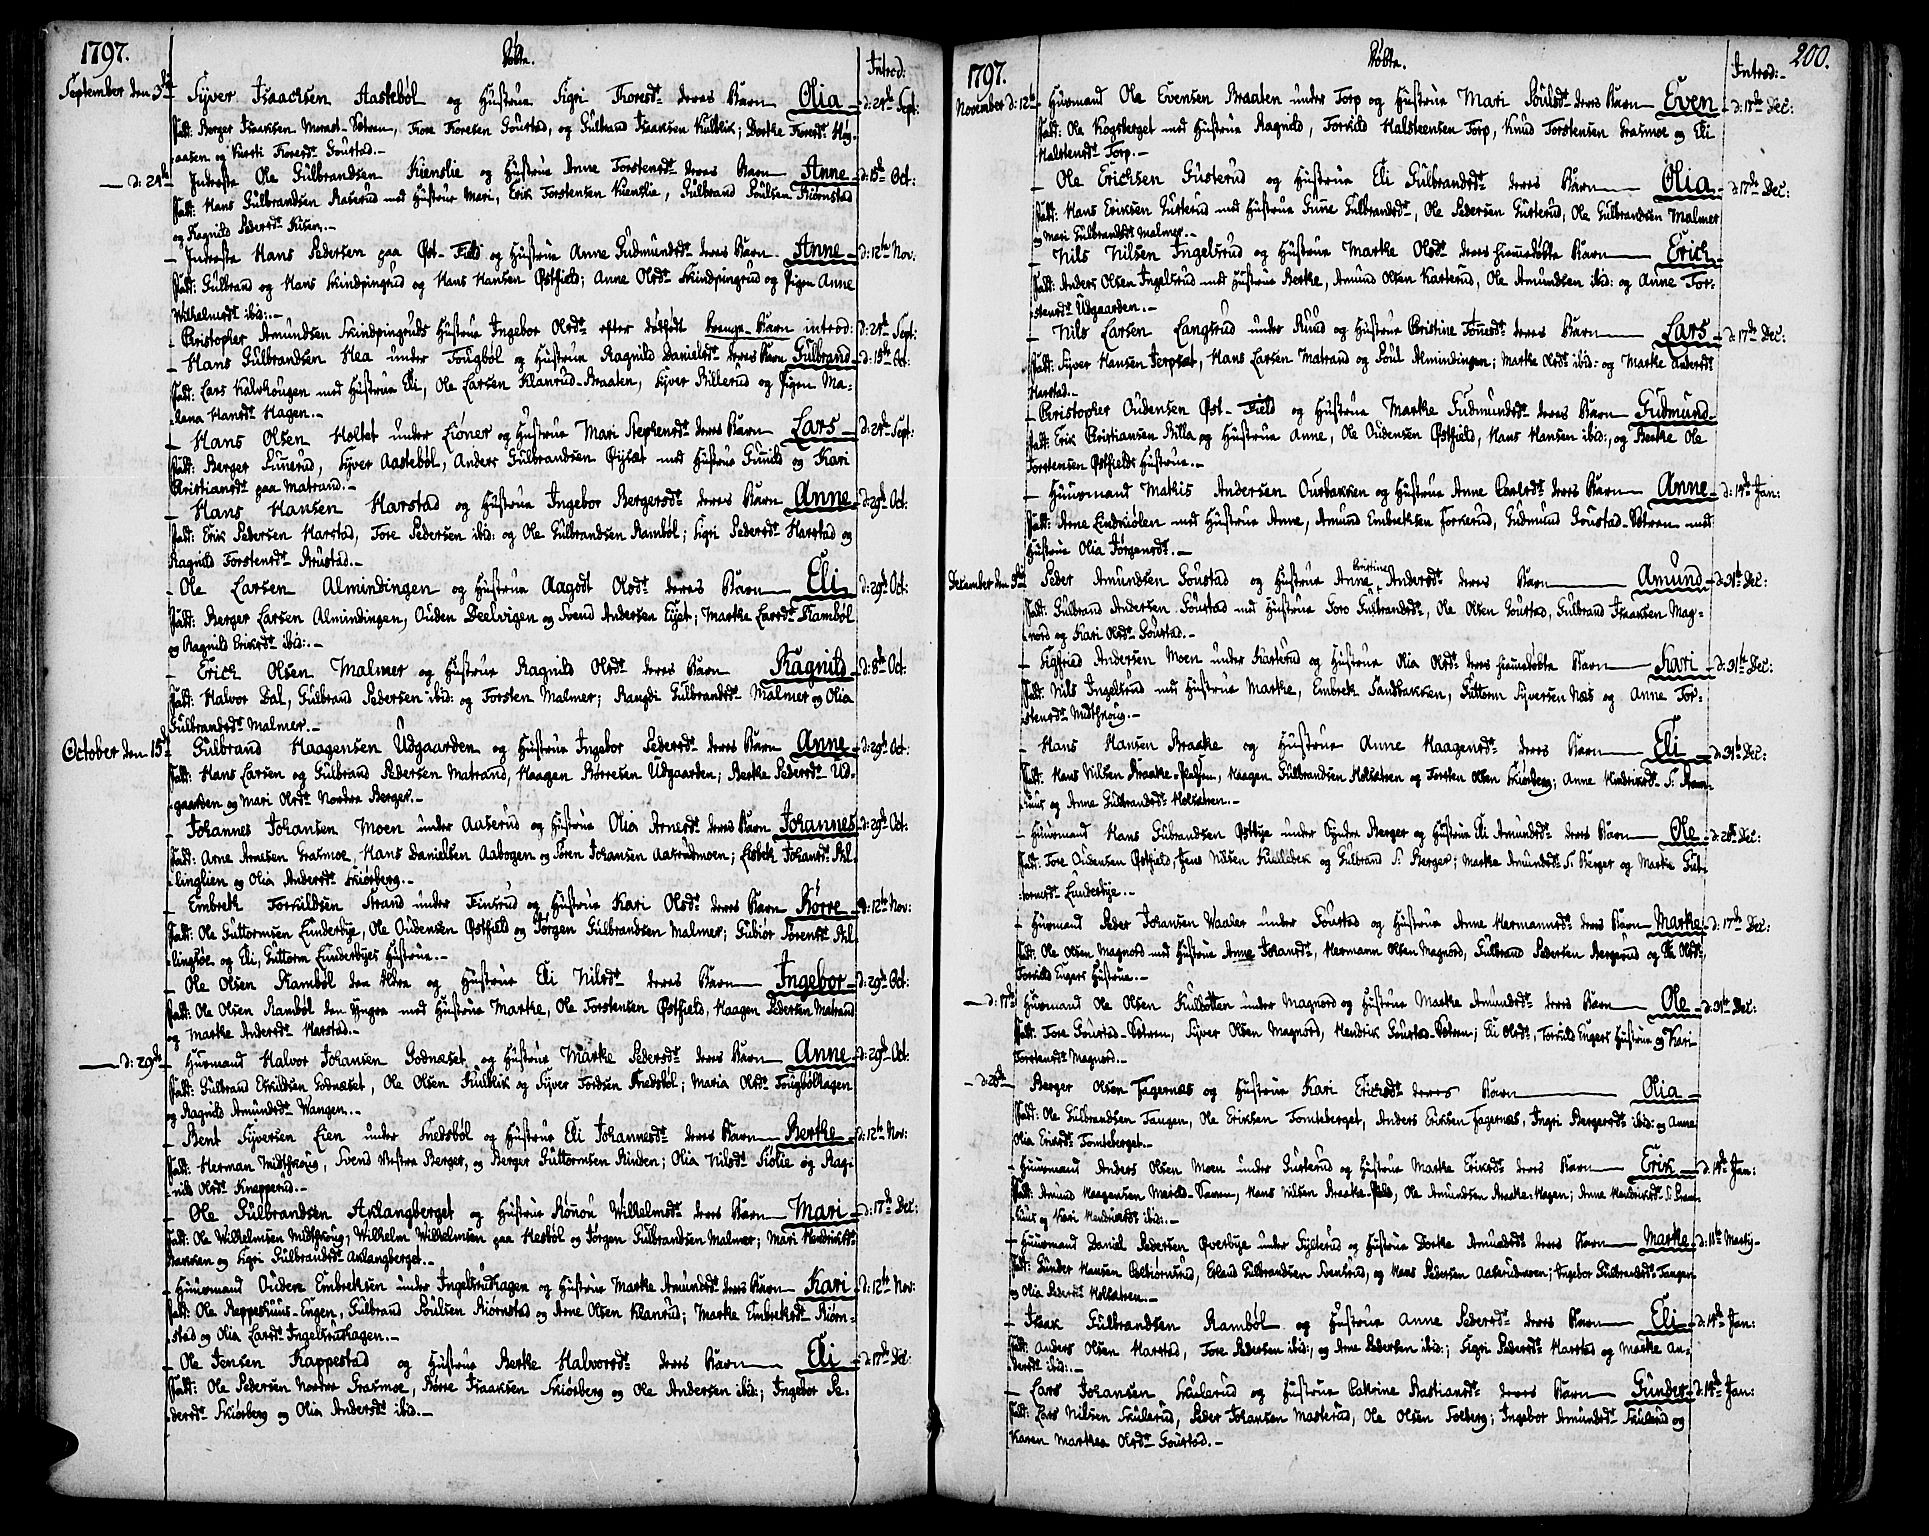 1797.
Døbte.
Introd:
September den 3de
Syver Isaachsen Aastebøl og Hustrue Sigri Thoresdt deres Barn Olia d: 24de Sept:
Fadd: Berger Isaaksen Morast-Sætren, Tore Toresen Goustad, og Gulbrand Isaaksen Kulblik; Dorthe Toresdt Høy-
aasen og Kersti Toresdt Goustad.
d: 24de
Inderste Ole Gulbrandsen Kienslie og Hustrue Anne Torstensdt deres Barn Anne d: 15de Oct:
Fadd: Hans Gulbrandsen Raserud med Hustrue Mari, Erik Torstensen Kienslie, Gulbrand Poulsen Biørnstad
og Ragnild Pedersdt Kisen.
Inderste Hans Pedersen paa Øst-Field og Hustrue Anne Gudmundsdt deres Barn Anne d: 12te Nov:
Fadd: Gulbrand og Hans Skindpungrud og Hans Hansen Østfield; Anne Olsdt Skindpungrud og Pigen Anne
Wilhelmsdt ibid:
Christopher Amundsen Skindpungruds Hustrue Ingebor Olsdt efter dødfødt Drenge-Barn introd: d: 24de Sept:
Hans Gulbrandsen Hea under Tougbøl og Hustrue Ragnild Danielsdt deres Barn Gulbrand d: 15de Oct:
Fadd: Lars Kalvhougen med Hustrue Eli, Ole Larsen Klanrud-Braaten, Syver Billerud og Pigen Ma-
lena Hansdt Hagen.
Hans Olsen Holtet under Lioner og Hustrue Mari Stephensdt deres Barn Lars d: 24de Sept:
Fadd: Berger Linnerud, Syver Aastebøl, Anders Gulbrandsen Øysæt med Hustrue Gunild og Kari
Christiansdt paa Matrand.
Hans Hansen Harstad og Hustrue Ingebor Bergersdt deres Barn Anne d: 29de Oct:
Fadd: Erik Pedersen Harstad, Tore Pedersen ibid: og Ole Gulbrandsen Rambøl; Sigri Pedersdt Harstad og
Ragnild Torstensdt Brustad.
Ole Larsen Almindingen og Hustrue Aagodt Olsdt deres Barn Eli d: 29de Oct:
Fadd: Berger Larsen Almindingen, Ouden Deelvigen og Svend Andersen Eyet; Marthe Larsdt Rambøl
og Ragnild Eriksdt ibid:
Erich Olsen Malmer og Hustrue Ragnild Olsdt deres Barn Ragnild d: 8de Oct:
Fadd: Halvor Dal, Gulbrand Pedersen ibid: og Torsten Malmer; Rangdi Gulbrandsdt Malmer og Olia
Gulbrandsdt Malmer.
October den 15de
Gulbrand Haagensen Udgaarden og Hustrue Ingebor Pedersdt deres Barn Anne d: 29de Oct:
Fadd: Hans Larsen og Gulbrand Pedersen Matrand, Haagen Børresen Udgaarden; Berthe Pedersdt Ud-
gaarden og Mari Olsdt Nordre Berger.
Johannes Johansen Moen under Aaserud og Hustrue Olia Arnesdt deres Barn Johannes d: 29de Oct:
Fadd: Arne Arnesen Grasmoe, Hans Danielsen Aabogen og Søren Johansen Aasrudmoen; Lisbeth Johansdt Skil-
linglien og Olia Andersdt Skiørberg.
Embret Torkildsen Strand under Finsrud og Hustrue Kari Olsdt deres Barn Børre d: 12te Nov:
Fadd: Ole Guttormsen Lunderbye, Ole Oudensen Østfield og Jørgen Gulbrandsen Malmer; Gubiør Sørensdt Skil-
lingsøe og Eli, Guttorm Lunderbyes Hustrue.
Ole Olsen Rambøl den Ældre og Hustrue Eli Nilsdt deres Barn Ingebor d: 29de Oct:
Fadd: Ole Olsen Rambøl den Yngre med Hustrue Marthe, Ole Torstensen Østfield, Haagen Pedersen Matrand
og Marthe Andersdt Harstad.
d: 29de
Huusmand Halvor Johansen Godnæset og Hustrue Marthe Pedersdt deres Barn Anne d: 29de Oct:
Fadd: Gulbrand Eskildsen Godnæset, Ole Olsen Kulblik og Syver Tordsen Snedsbøl; Maria Olsdt Tougbølhagen
og Ragnild Amundsdt Wangen.
Bent Syversen Lien under Snedsbøl og Hustrue Eli Johannesdt deres Barn Berthe d: 12te Nov:
Fadd: Herman Midtskoug, Svend Vestre Berger, og Berger Guttormsen Rinden; Olia Nilsdt Siølie og Rag-
nild Olsdt Knapperud.
Ole Gulbrandsen Axlangberget og Hustrue Rønou Wilhelmsdt deres Barn Mari d: 17de Dec:
Fadd: Ole Wilhelmsen Midtskoug, Wilhelm Wilhelmsen paa Hesbøl og Jørgen Gulbrandsen Malmer; Mari Hendriksdt
Bakken og Sigri Gulbrandsdt Axlangberget.
Huusmand Oudene Embretsen under Ingelsrudhagen og Hustrue Marthe Amundsdt deres Barn Kari d: 12te Nov:
Fadd: Ole Reppeshuus-Engen, Gulbrand Poulsen Biørnstad og Arne Olsen Klanrud; Marthe Embretsdt Biørn-
stad og Olia Larsdt Ingelsrudhagen.
Ole Jensen Rappestad og Hustrue Berthe Halvorsdt deres Barn Eli d: 17de Dec:
Fadd: Ole Pedersen Nordre Grasmoe, Børre Isaaksen Skiørberg og Ole Andersen ibid:; Ingebor Pe-
dersdt Skiørberg og Olia Andersdt ibid.
1797.
Døbte.
Introd:
200.
November d: 12te
Huusmand Ole Evensen Braaten under Torp og Hustrue Mari Poulsdt deres Barn Even d: 17de Dec:
Fadd: Ole Kogsberget med Hustrue Ragnild, Torkild Halstensen Torp, Knud Torstensen Grasmoe og Eli
Halstensdt Torp.
Ole Erichsen Gusterud og Hustrue Eli Gulbrandsdt deres Barn Olia d: 17de Dec:
Fadd: Hans Eriksen Gusterud med Hustrue Gune Gulbrandsdt, Ole Pedersen Gusterud, Ole Gulbrandsen Malmer
og Mari Gulbrandsdt Malmer.
Nils Nilsen Ingelsrud og Hustrue Marthe Olsdt deres hiemedøbte Barn Erich
Fadd: Anders Olsen Ingelsrud med Hustrue Berthe, Amund Olsen Karterud, Ole Amundsen ibid: og Anne Tor-
stensdt Udgaarden.
Nils Larsen Langsrud under Ruud og Hustrue Christine Tønnesdt deres Barn Lars d: 17de Dec:
Fadd: Syver Hansen Jerpset, Hans Larsen Matrand og Poul Almindingen; Marthe Olsdt ibid: og Marthe Andersdt
Harstad.
Christopher Oudensen Øst-Field og Hustrue Marthe Gudmundsdt deres Barn Gudmund
Fadd: Erik Christiansen Billa og Hustrue Anne, Ole Oudensen Østfield, Hans Hansen ibid:, og Berthe Ole
Torstensen Østfields Hustrue.
Huusmand Mathis Andersen Ousbakken og Hustrue Anne Carlsdt deres Barn Anne d: 14de Jan:
Fadd: Arne Lindkiølen med Hustrue Anne, Amund Embretsen Torkerud, Gudmund Goustad-Sætren med
Hustrue Olia Jørgensdt.
December den 3de
Peder Amundsen Goustad og Hustrue Anne Kristine Andersdt deres Barn Amund d: 31te Dec:
Fadd: Gulbrand Andersen Goustad med Hustrue Goro Gulbrandsdt, Ole Olsen Goustad, Gulbrand Isaaksen Mag-
nord og Kari Olsdt Goustad.
Sigfried Andersen Moen under Karterud og Hustrue Olia Olsdt deres hiemedøbte Barn Kari d: 31te Dec:
Fadd: Nils Ingelsrud med Hustrue Marthe, Embret Sandbakken, Guttorm Syversen Næs og Anne Tor-
stensdt Midtskoug.
Hans Hansen Braathe og Hustrue Anne Haagensdt deres Barn Eli d: 31te Dec:
Fadd: Hans Nilsen Braathe-Pladsen, Haagen Gulbrandsen Holsætren og Torsten Olsen Skiørberg; Anne Hendriksdt S. Bram-
huus og Anne Gulbrandsdt Holsætren.
Huusmand Hans Gulbrandsen Østbye under Søndre Berger og Hustrue Eli Amundsdt deres Barn Ole d: 26de Dec:
Fadd: Tore Oudensen Østfield, Jens Nilsen Kulblik og Gulbrand S. Berger; Marthe Amundsdt S. Berger og Marthe Gut-
tormsdt Lunderbye.
Huusmand Peder Johansen Waaler under Goustad og Hustrue Anne Hermansdt deres Barn Marthe d: 17de Dec:
Fadd: Ole Olsen Magnord med Hustrue Anne Johansdt, Hermann Olsen Magnord, Gulbrand Pedersen Bergerud og Eli Olsdt,
Torkild Engers Hustrue.
d: 17de
Huusmand Ole Olsen Kulbotten under Magnord og Hustrue Marthe Amundsdt deres Barn Ole d: 31te Dec:
Fadd: Tore Goustad-Sætren, Syver Olsen Magnord, Hendrik Goustad-Sætren; Eli Olsdt, Torkild Engers Hustrue og Kari
Torstensdt Magnord.
d: 26de
Berger Olsen Fagernæs og Hustrue Kari Erichsdt deres Barn Olia
Fadd: Ole Gulbrandsen Tangen, Ole Eriksen Tomteberget, Anders Eriksen Fagernæs, Ingri Bergersdt ibid: og Anne
Olia Eriksdt Tomteberget.
Huusmand Anders Olsen Moen under Gusterud og Hustrue Marthe Eriksdt deres Barn Erik d: 14de Jan:
Fadd: Amund Haagensen Morast-Sætren, Hans Nilsen Braathe-Plads, Ole Amundsen Braathe-Hagen; Anne Hendriksdt S. Bram-
huus og Kari Hendriksdt ibid:
Huusmand Daniel Pedersen Øverbye under Sylterud og Hustrue Dorthe Amundsdt deres Barn Marthe d: 11te Martij
Fadd: Gunder Hansen Esbiørnsrud, Erland Gulbrandsen Svensrud, og Hans Pedersen Aasrudmoen; Ingebor Gulbrandsdt Tangen
og Olia Pedersdt Holsætren.
Isaak Gulbrandsen Rambøl og Hustrue Anne Pedersdt deres Barn Eli d: 14de Jan:
Fadd: Anders Olsen Harstad, Tore Pedersen ibid:, og Arne Pedersen ibid:; Sigri Pedersdt Harstad og Marthe An-
dersdt ibid:
Lars Johansen Skulerud og Hustrue Cathrine Bastiansdt deres Barn Gunder d: 14de Jan:
Fadd: Lars Nilsen Skulerud, Peder Johansen Masterud, Ole Olsen Solberg; Ingebor Amundsdt Skulerud og
Karen Marthea Olsdt Goustad.